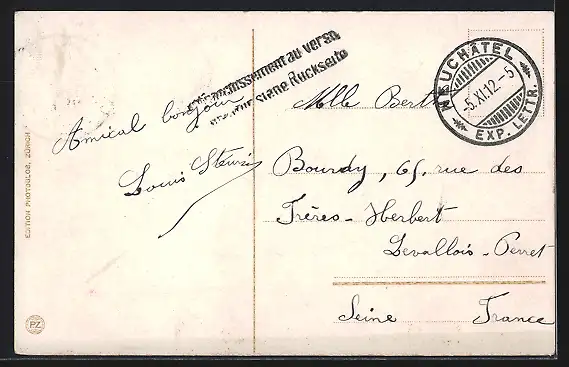 Affranchissement au verso
Frankatur siehe Rückseite
NEUCHÂTEL
-5.XI.12-5
EXP. LETTR.
Amical bonjour
Louis
Mlle Berthe
Bourdy, 65, rue des
Frères-Herbert
Levallois-Perret
Seine France
EDITION PHOTOGLOB, ZÜRICH
PZ